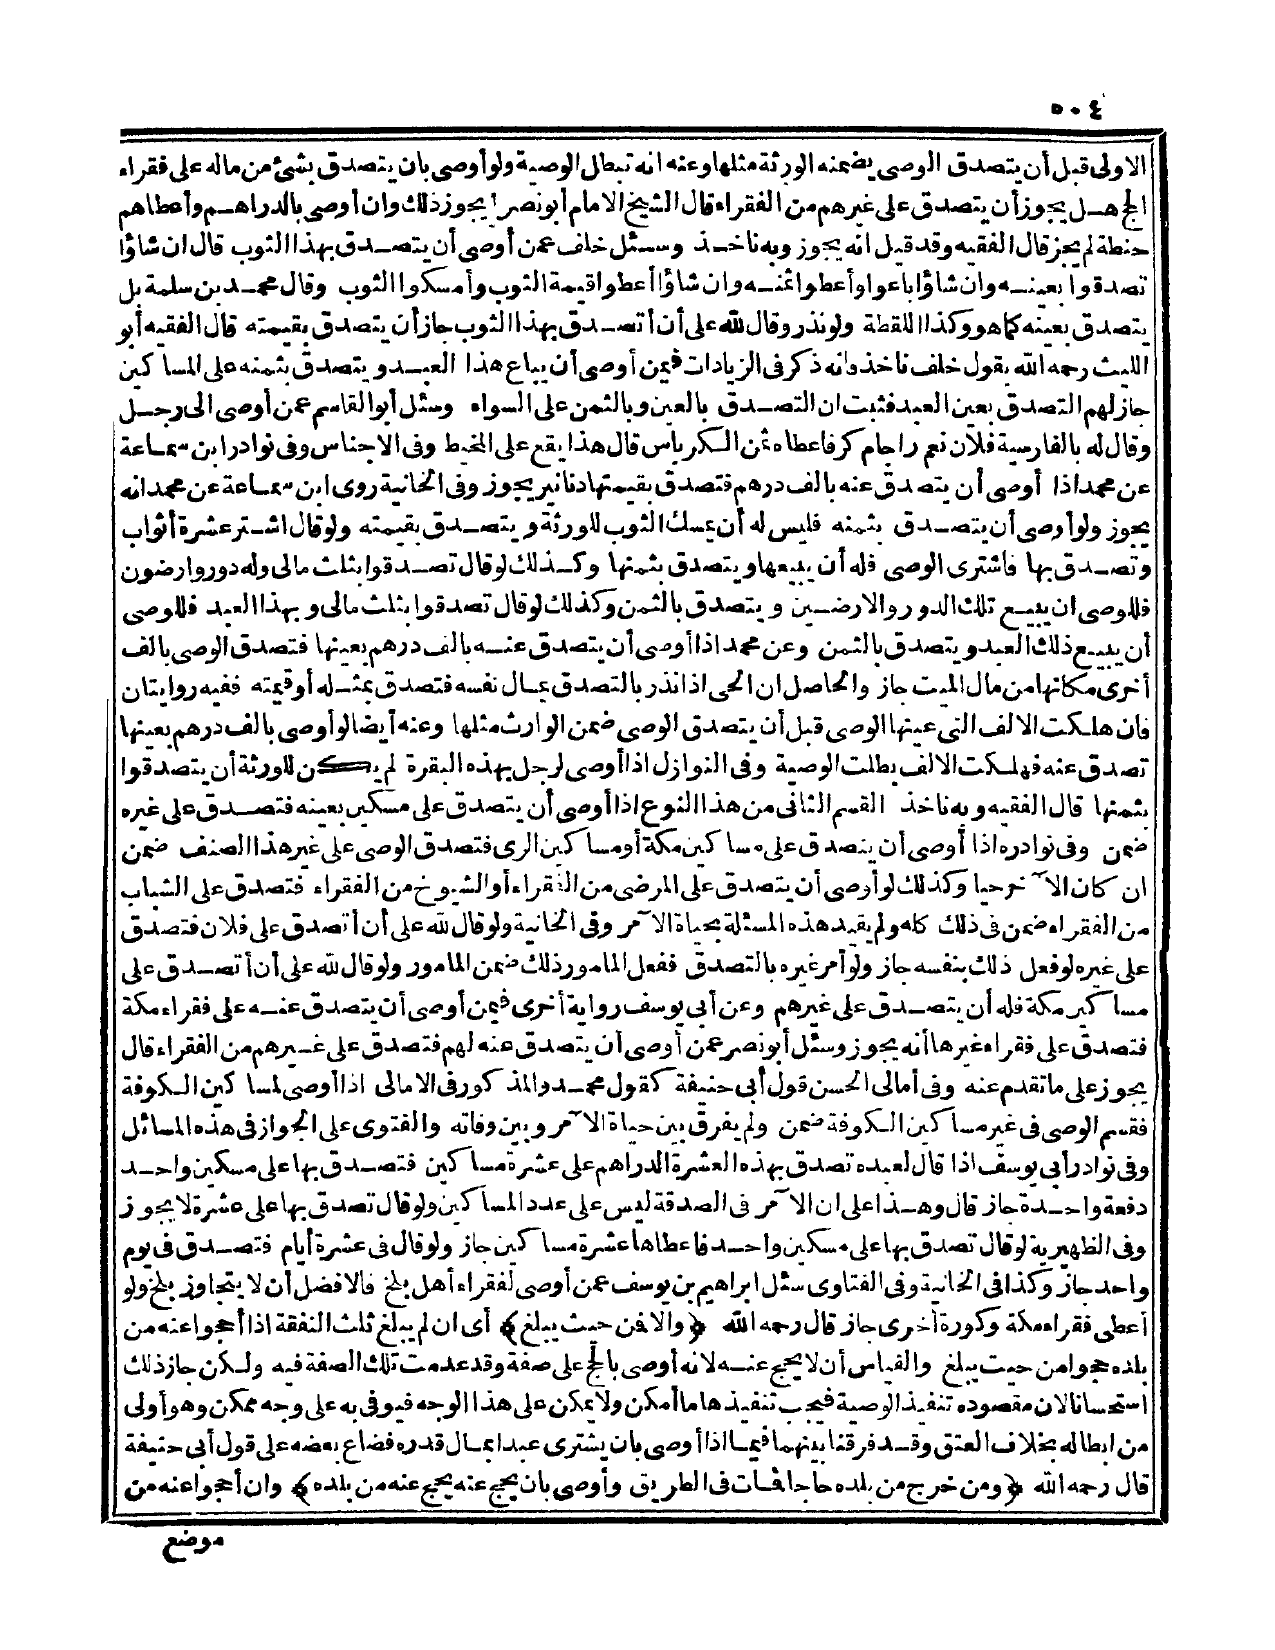 ٥٠٤
الاولى قبل أن يتصدق الوصى يضمنه الورثة مثلها وعنه انه تبطل الوصية ولو أوصى بان يتصدق بشئ من ماله على فقراء
يجوز أن يتصدق على غيرهم من الفقراء قال الشيخ الامام أبو نصر يجوز ذلك وان أوصى بالدراهم وأعطاهم
حنطة لم يجز قال الفقيه وقد قيل انه يجوز وبه ناخذ وسئل خلف عمن أوصى أن يتصدق بهذا الثوب قال ان شاؤا
تصدقوا بعينه وان شاؤا باعوا وأعطوا ثمنه وان شاؤا أعطوا قيمة الثوب وأمسكوا الثوب وقال محمد بن سلمة بل
يتصدق بعينه كما هو وكذا اللقطة ولو نذر وقال لله على أن أتصدق بهذا الثوب جاز أن يتصدق بقيمته قال الفقيه أبو
الليث رحمه الله بقول خلف ناخذ فانه ذكر فى الزيادات فيمن أوصى أن يباع هذا العبد ويتصدق بثمنه على المساكين
جاز لهم التصدق بعين العبد فثبت ان التصدق بالعين وبالثمن على السواء وسئل أبو القاسم عمن أوصى الى رجل
وقال له بالفارسية فلان نعم را جام كر فاعطاه ثمن الكرباس قال هذا يقع على المخيط وفى الاجناس وفى نوادر ابن سماعة
عن محمد اذا أوصى أن يتصدق عنه بالف درهم فتصدق بقيمتها دنانير يجوز وفى الخانية روى ابن سماعة عن محمد انه
يجوز ولو أوصى أن يتصدق بثمنه فليس له أن يمسك الثوب للورثة ويتصدق بقيمته ولو قال اشتر عشرة أثواب
وتصدق بها فاشترى الوصى فله أن يبيعها ويتصدق بثمنها وكذلك لو قال تصدقوا بثلث مالى وله دور وارضون
فللوصى ان يبيع تلك الدور والارضين ويتصدق بالثمن وكذلك لو قال تصدقوا بثلث مالى وبهذا العبد فللوصى
أن يبيع ذلك العبد ويتصدق بالثمن وعن محمد اذا أوصى أن يتصدق عنه بالف درهم بعينها فتصدق الوصى بالف
أخرى مكانها من مال الميت جاز والحاصل ان الحى اذا نذر بالتصدق بمال نفسه فتصدق بمثله أو قيمته ففيه روايتان
فان هلكت الالف التى عينها الوصى قبل أن يتصدق الوصى ضمن الوارث مثلها وعنه أيضا لو أوصى بالف درهم بعينها
تصدق عنه فهلكت الالف بطلت الوصية وفى النوازل اذا أوصى لرجل بهذه البقرة لم يكن للورثة أن يتصدقوا
بثمنها قال الفقيه وبه ناخذ القسم الثانى من هذا النوع اذا أوصى أن يتصدق على مسكين بعينه فتصدق على غيره
ضمن وفى نوادره اذا أوصى أن يتصدق على مساكين مكة أو مساكين الرى فتصدق الوصى على غير هذا الصنف ضمن
ان كان الآخر حيا وكذلك لو أوصى أن يتصدق على المرضى من الفقراء أو الشيوخ من الفقراء فتصدق على الشباب
من الفقراء ضمن فى ذلك كله ولم يقيد هذه المسئلة بحياة الآمر وفى الخانية ولو قال لله على أن أتصدق على فلان فتصدق
على غيره لو فعل ذلك بنفسه جاز ولو أمر غيره بالتصدق ففعل المامور ذلك ضمن المامور ولو قال لله على أن أتصدق على
مساكين مكة فله أن يتصدق على غيرهم وعن أبى يوسف رواية أخرى فيمن أوصى أن يتصدق عنه على فقراء مكة
فتصدق على فقراء غيرها أنه يجوز وسئل أبو نصر عمن أوصى أن يتصدق عنه لهم فتصدق على غيرهم من الفقراء قال
يجوز على ما تقدم عنه وفى أمالى الحسن قول أبى حنيفة كقول محمد والمذكور فى الامالى اذا أوصى لمساكين الكوفة
فقسم الوصى فى غير مساكين الكوفة ضمن ولم يفرق بين حياة الآمر وبين وفاته والفتوى على الجواز فى هذه المسائل
وفى نوادر أبى يوسف اذا قال لعبده تصدق بهذه العشرة الدراهم على عشرة مساكين فتصدق بها على مسكين واحد
دفعة واحدة جاز قال وهذا على ان الآمر فى الصدقة ليس على عدد المساكين ولو قال تصدق بها على عشرة لا يجوز
وفى الظهيرية لو قال تصدق بها على مسكين واحد فاعطاها عشرة مساكين جاز ولو قال فى عشرة أيام فتصدق فى يوم
واحد جاز وكذا فى الخانية وفى الفتاوى سئل ابراهيم بن يوسف عمن أوصى لفقراء أهل بلخ فالافضل أن لا يتجاوز بلخ ولو
أعطى فقراء مكة وكورة أخرى جاز قال رحمه الله ﴿والا فمن حيث يبلغ﴾ أى ان لم يبلغ ثلث النفقة اذا أحجوا عنه من
بلده حجوا من حيث يبلغ والقياس أن لا يحج عنه لانه أوصى بالحج على صفة وقد عدمت تلك الصفة فيه ولكن جاز ذلك
استحسانا لان مقصوده تنفيذ الوصية فيجب تنفيذها ما أمكن ولا يمكن على هذا الوجه فيوفى به على وجه ممكن وهو أولى
من ابطاله بخلاف العتق وقد فرقنا بينهما فيما اذا أوصى بان يشترى عبدا بمال قدره فضاع بعضه على قول أبى حنيفة
قال رحمه الله ﴿ومن خرج من بلده حاجا فمات فى الطريق وأوصى بان يحج عنه يحج عنه من بلده﴾ وان أحجوا عنه من
موضع